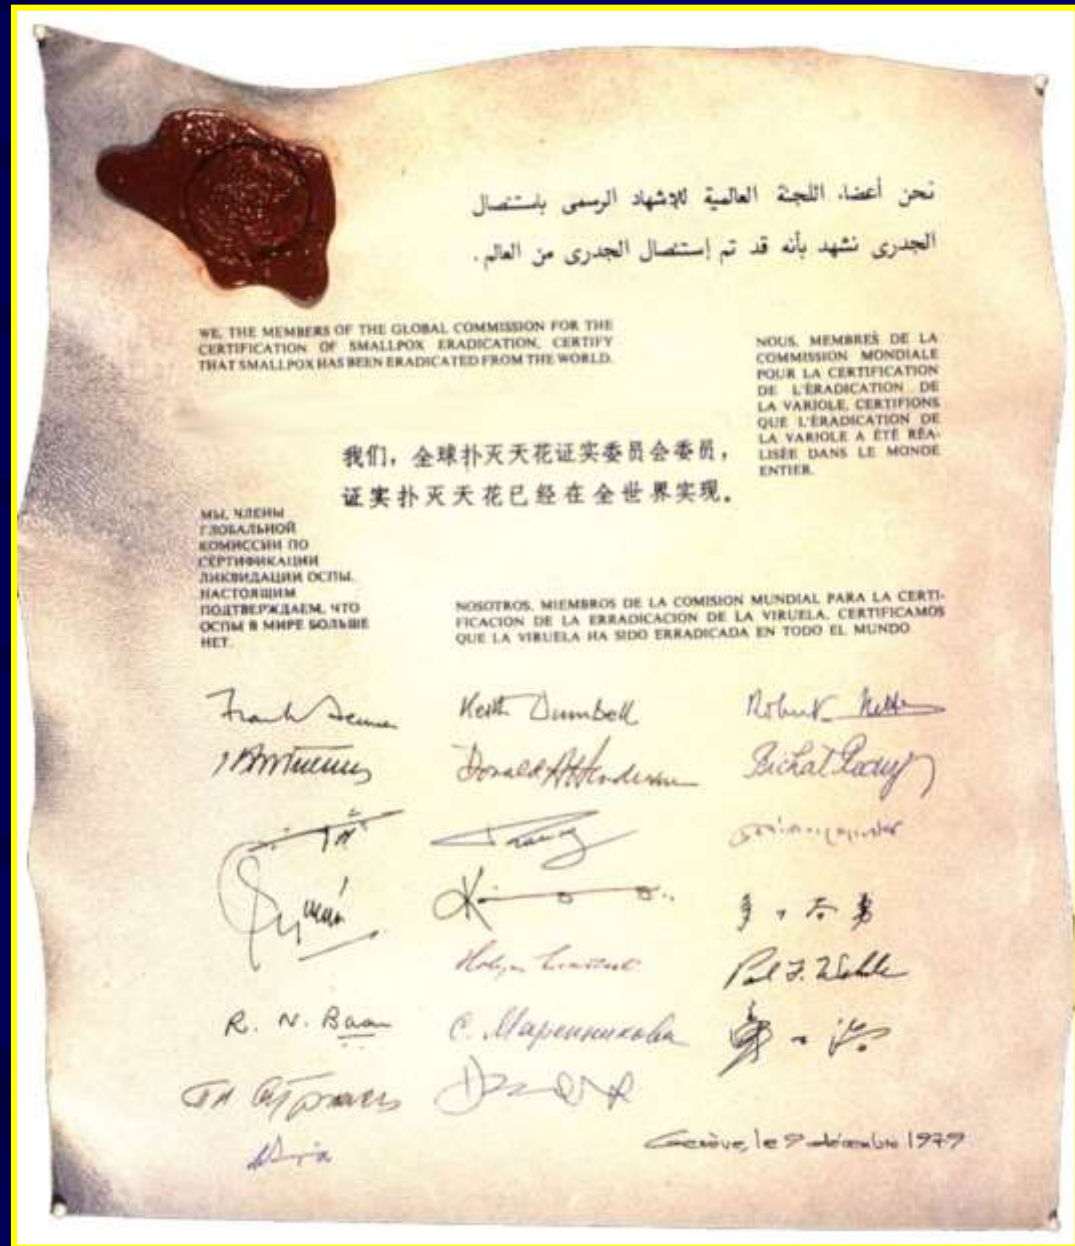 نحن أعضاء اللجنة العالمية للإشهاد الرسمى باستئصال
الجدرى نشهد بأنه قد تم إستئصال الجدرى من العالم.
WE, THE MEMBERS OF THE GLOBAL COMMISSION FOR THE
CERTIFICATION OF SMALLPOX ERADICATION, CERTIFY
THAT SMALLPOX HAS BEEN ERADICATED FROM THE WORLD.
NOUS, MEMBRES DE LA
COMMISSION MONDIALE
POUR LA CERTIFICATION
DE L'ÉRADICATION DE
LA VARIOLE, CERTIFIONS
QUE L'ÉRADICATION DE
LA VARIOLE A ÉTÉ RÉA-
LISÉE DANS LE MONDE
ENTIER.
我们，全球扑灭天花证实委员会委员，
证实扑灭天花已经在全世界实现。
МЫ, ЧЛЕНЫ
ГЛОБАЛЬНОЙ
КОМИССИИ ПО
СЕРТИФИКАЦИИ
ЛИКВИДАЦИИ ОСПЫ,
НАСТОЯЩИМ
ПОДТВЕРЖДАЕМ, ЧТО
ОСПЫ В МИРЕ БОЛЬШЕ
НЕТ.
NOSOTROS, MIEMBROS DE LA COMISION MUNDIAL PARA LA CERTI-
FICACION DE LA ERRADICACION DE LA VIRUELA, CERTIFICAMOS
QUE LA VIRUELA HA SIDO ERRADICADA EN TODO EL MUNDO
Frank Fenner
Keith Dumbell
Robert Netter
Donald A Henderson
Bichat
Paul F. Wehrle
R. N. Basu
С. Маренникова
Genève, le 9 décembre 1979